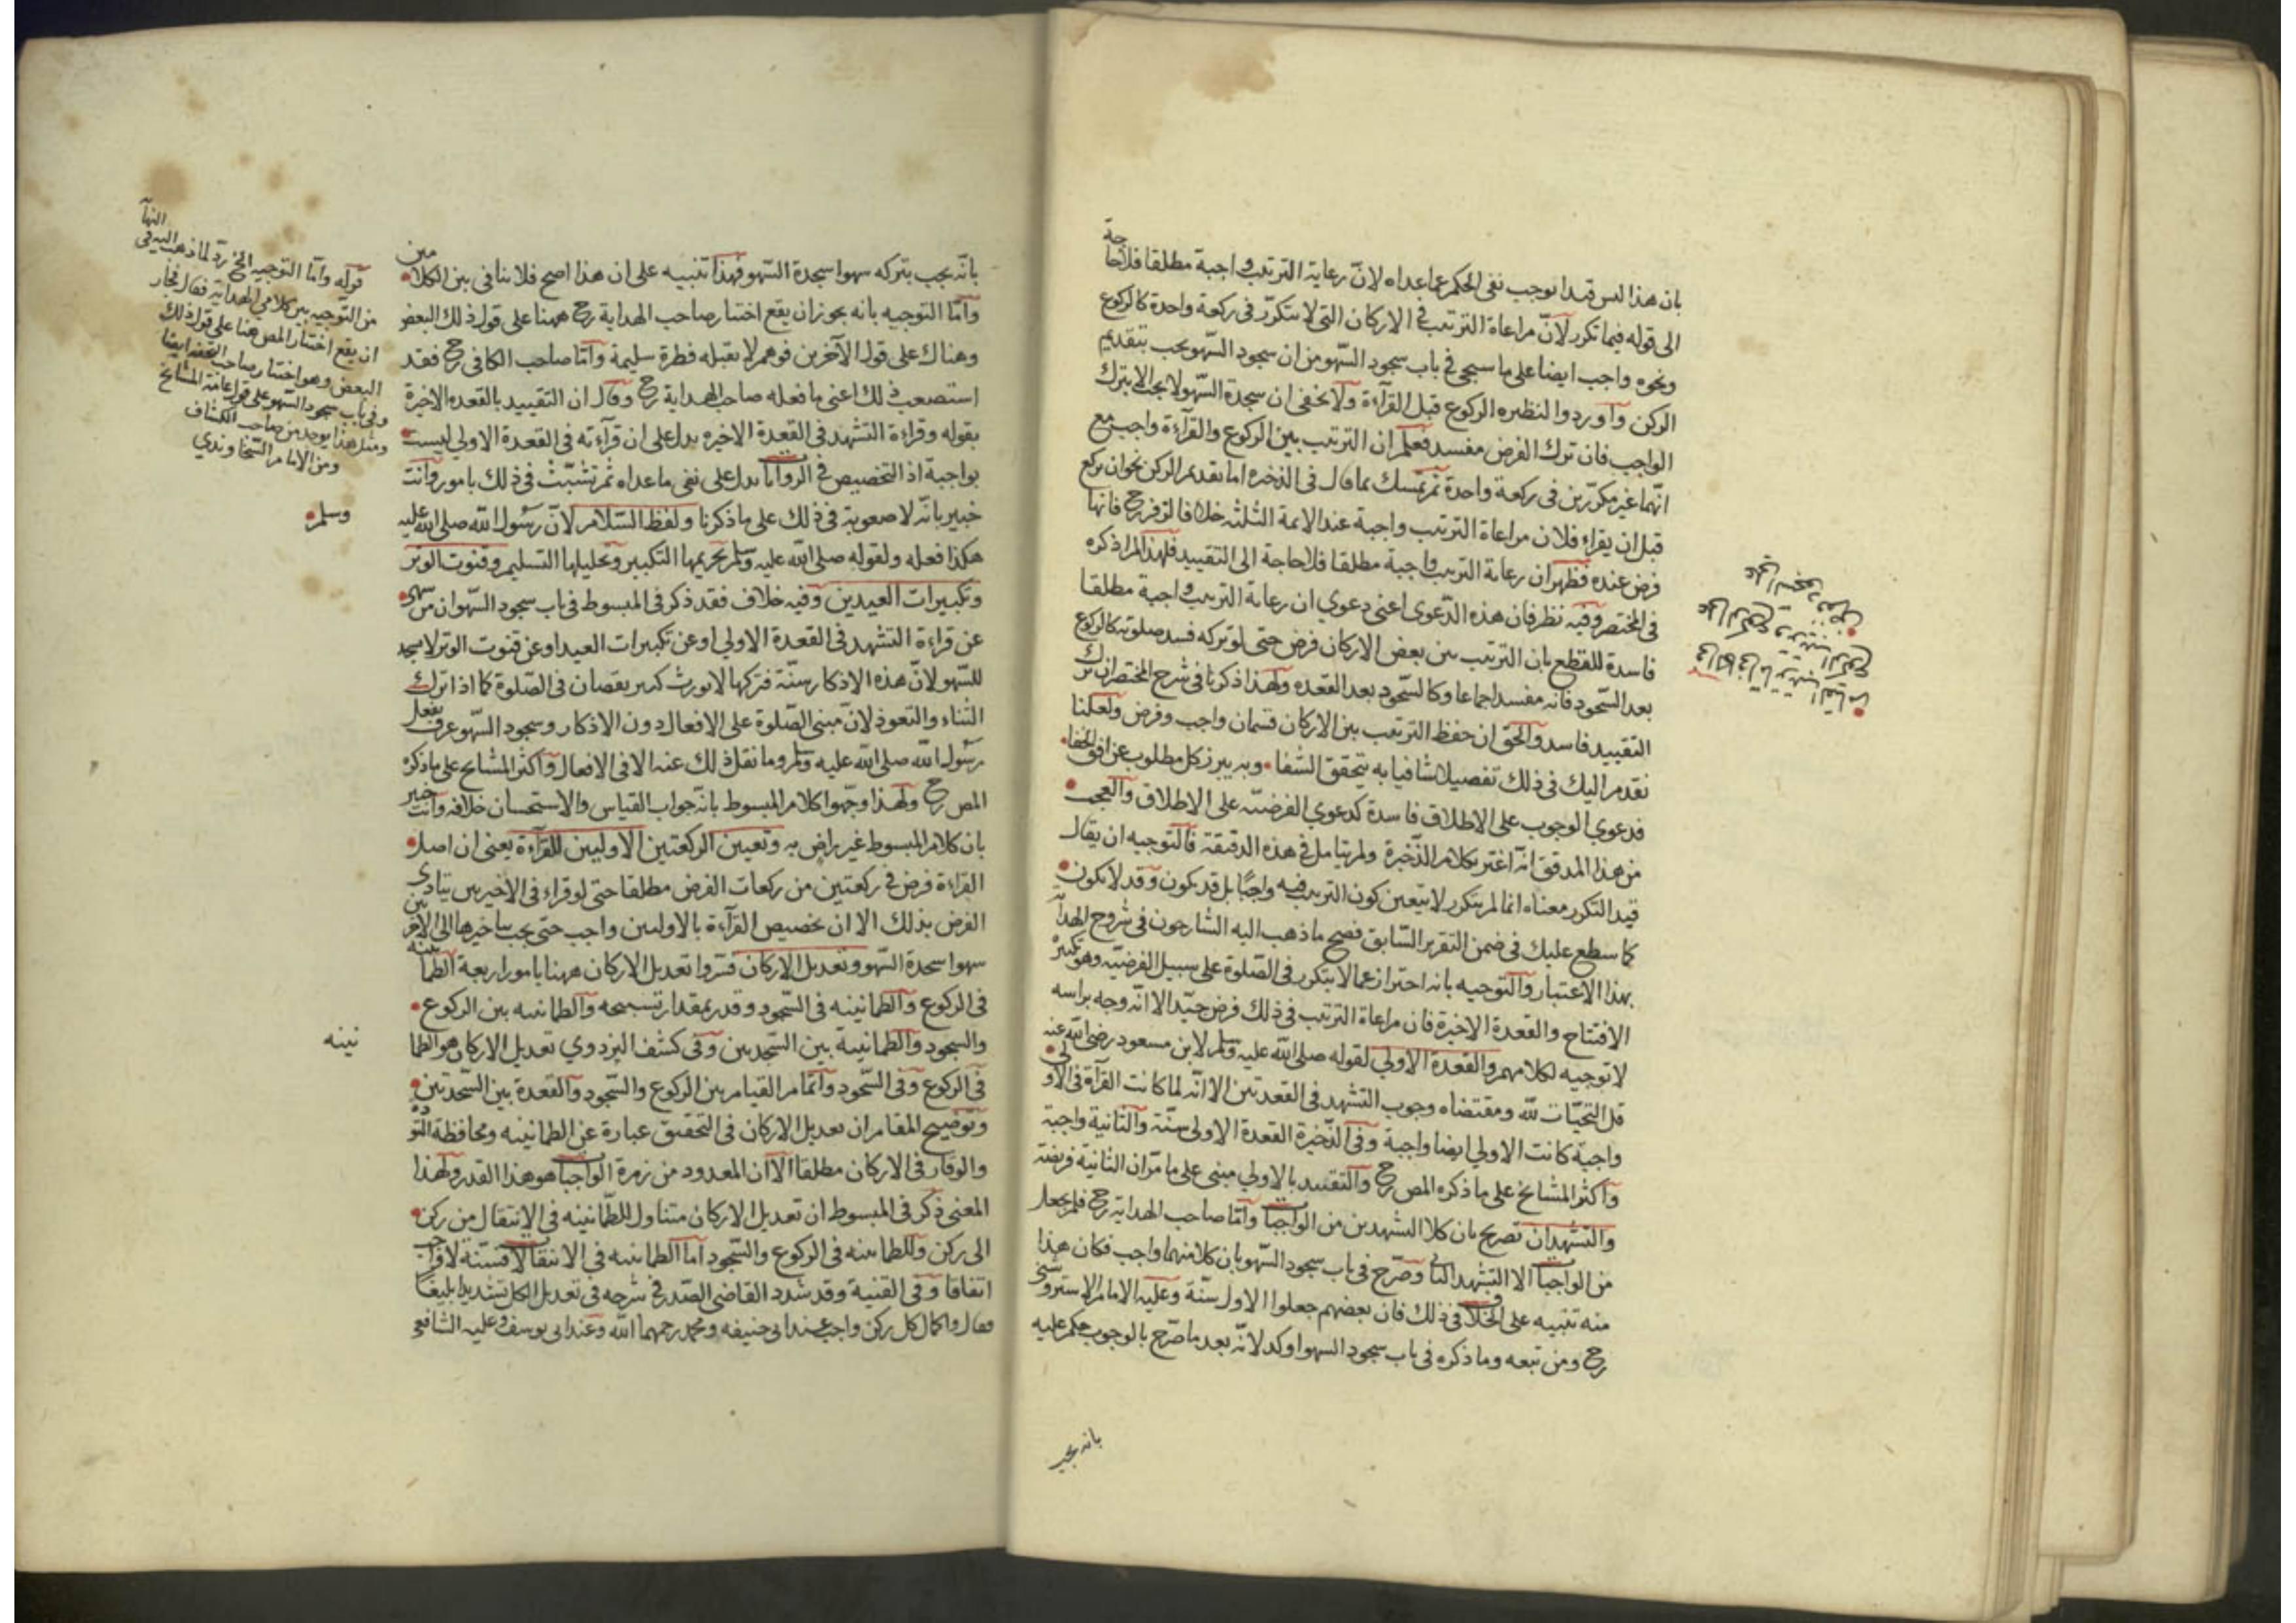 بان هذا ليس قيدا يوجب نفي الحكم عما عداه لانّ رعاية الترتيب واجبة مطلقا فلا حاجة
الى قوله فيما تكرر لانّ مراعاة الترتيب في الاركان التي لا يتكرّر في ركعة واحدة كالركوع
ونحوه واجب ايضا على ما سيجي في باب سجود السّهو من ان سجود السّهو يجب بتقديم
الركن وآوردوا لنظيره الركوع قبل القرآءة ولا يخفى ان سجدة السّهو لا يجب الا بترك
الواجب فان ترك الفرض مفسد فعلم ان الترتيب بين الركوع والقرآءة واجب مع
انّهما غير مكرّرين في ركعة واحدة ثم تمسك بما قال في الذخيره اما تقديم الركن نحو ان يركع
قبل ان يقراء فلان مراعاة الترتيب واجبة عند الائمة الثلثه خلافا لزفر رح فانها
فرض عنده فظهر ان رعاية الترتيب واجبة مطلقا فلا حاجة الى التقييد فلهذا لم اذكره
في المختصر وفيه نظر فان هذه الدّعوى اعني دعوي ان رعاية الترتيب واجبة مطلقا
فاسدة للقطع بان الترتيب بين بعض الاركان فرض حتى لو تركه فسد صلوته كالركوع
بعد السّجود فانه مفسد اجماعا وكالسّجود بعد القعده ولهذا ذكرنا في شرح المختصر ان ترك
التقييد فاسد والحق ان حفظ الترتيب بين الاركان قسمان واجب وفرض ولعلنا
نقدم اليك في ذلك تفصيلا شافيا به يتحقق الشفا وبه يبرز كل مطلوب عن افق الخفا
فدعوي الوجوب على الاطلاق فاسدة كدعوي الفرضيّه على الاطلاق والعجب
من هذا المدقق انّه اغتر بكلام الذّخيرة ولم يتامل في هذه الدقيقة فالتوجيه ان يقال
قيد التكرر معناه انما لم يتكرر لا يتعين كون الترتيب فيه واجبًا بل قد يكون وقد لا يكون
كما سطع عليك في ضمن التقرير السّابق فصح ما ذهب اليه الشارحون في شروح الهداية
بهذا الاعتبار والتوجيه بانه احتراز عما لا يتكرر في الصّلوة على سبيل الفرضيّه وهو تكبيرة
الافتتاح والقعدة الاخيرة فان مراعاة الترتيب في ذلك فرض جيّد الا انّه وجه براسه
لا توجيه لكلامهم والقعدة الاولي لقوله صلى الله عليه وسلم لابن مسعود رضي الله عنه
قل التحيّات لله ومقتضاه وجوب التشهد في القعدتين الا انّه لما كانت القرآة في الاولي
واجبة كانت الاولي ايضا واجبة وفي الذّخيرة القعدة الاولى سنّة والثانية واجبة
وآكثر المشايخ على ما ذكره المص رح والتقييد بالاولي مبني على ما مرّ ان الثانية فريضة
والتشهدان تصريح بان كلا التشهدين من الواجبات وآمّا صاحب الهداية رح فلم يجعل
من الواجبات الا التشهد الثاني وصرّح في باب سجود السّهو بان كلا منهما واجب فكان هذا
منه تنبيه على الخلاف في ذلك فان بعضهم جعلوا الاول سنّة وعليه الامام الاستروشني
رح ومن تبعه وما ذكره في باب سجود السهو اوكد لانّه بعد ما صرّح بالوجوب حكم عليه
بانه يجب
بانّه يجب بتركه سهوا سجدة السّهو فهذا تنبيه على ان هذا اصح فلا ينافي بين الكلامين
وآمّا التوجيه بانه يجوز ان يقع اختيار صاحب الهداية رح ههنا على قول ذلك البعض
وهناك على قول الآخرين فوهم لا يقبله فطرة سليمة وآمّا صاحب الكافي رح فقد
استصعب ذلك اعني ما فعله صاحب الهداية رح وقال ان التقييد بالقعده الاخرة
بقوله وقراءة التشهد في القعدة الاخيره يدل على ان قرآءته في القعدة الاولي ليست
بواجبة اذ التخصيص في الروايات يدل على نفي ما عداه ثم تشبّث في ذلك بامور وآنت
خبير بانّه لا صعوبة في ذلك على ما ذكرنا ولفظ السّلام لانّ رسول الله صلى الله عليه
وسلم
هكذا فعله ولقوله صلى الله عليه وسلم تحريمها التكبير وتحليلها التسليم وقنوت الوتر
وتكبيرات العيدين وفيه خلاف فقد ذكر في المبسوط في باب سجود السّهو ان من سهى
عن قراءة التشهد في القعدة الاولي او عن تكبيرات العيد او عن قنوت الوتر لا يسجد
للسّهو لانّ هذه الاذكار سنّة فتركها لا يورث كبير نقصان في الصّلوة كما اذا ترك
الثناء والتعوذ لانّ مبنى الصّلوة على الافعال دون الاذكار وسجود السّهو عرف بفعل
رسول الله صلى الله عليه وسلم وما نقل ذلك عنه الا في الافعال وآكثر المشايخ على ما ذكره
المص رح ولهذا وجّهوا كلام المبسوط بانّه جواب القياس والاستحسان خلافه وآنت خبير
بان كلام المبسوط غير راض به وتعيين الركعتين الاوليين للقرآءة يعني ان اصل
القراءة فرض في ركعتين من ركعات الفرض مطلقا حتى لو قراء في الاخيرين يتادى
الفرض بذلك الا ان تخصيص القرآءة بالاوليين واجب حتى يجب بتاخيرها الى الاخريين
سهوا سجدة السّهو وتعديل الاركان فسّروا تعديل الاركان ههنا بامور اربعة الطمانينه
في الركوع والطمانينه في السّجود وقدر بمقدار تسبيحه والطمانينه بين الركوع
والسجود والطمانينة بين السّجدين وفي كشف البزدوي تعديل الاركان هو الطما
نينه
في الركوع وفي السّجود وآتمام القيام بين الركوع والسّجود والقعدة بين السّجدتين
وتوضيح المقام ان تعديل الاركان في التحقيق عبارة عن الطمانينه ومحافظة التؤدة
والوقار في الاركان مطلقا الا ان المعدود من زمرة الواجبات هو هذا القدر ولهذا
المعنى ذكر في المبسوط ان تعديل الاركان متناول للطّمانينه في الانتقال من ركن
الى ركن وللطمانينه في الركوع والسّجود اما الطمانينه في الانتقالات فسنّة لا واجب
اتفاقا وفي القنية وقد شدد القاضي الصّدر في شرحه في تعديل الكل تشديدا بليغًا
فقال واكمال كل ركن واجب عند ابي حنيفه ومحمد رحمهما الله وعند ابي يوسف وعليه الشافعي
قوله وآمّا التوجيه الخ ردّ لما ذهب اليه في النها
من التوجيه بين كلامي الهداية فقال فجاز
ان يقع اختيار المص ههنا على قول ذلك
البعض وهو اختيار صاحب التحفه ايضا
وفي باب سجود السّهو على قول عامّة المشايخ
ومثل هذا يوجد من صاحب الكشاف
ومن الامام السّجاوندي